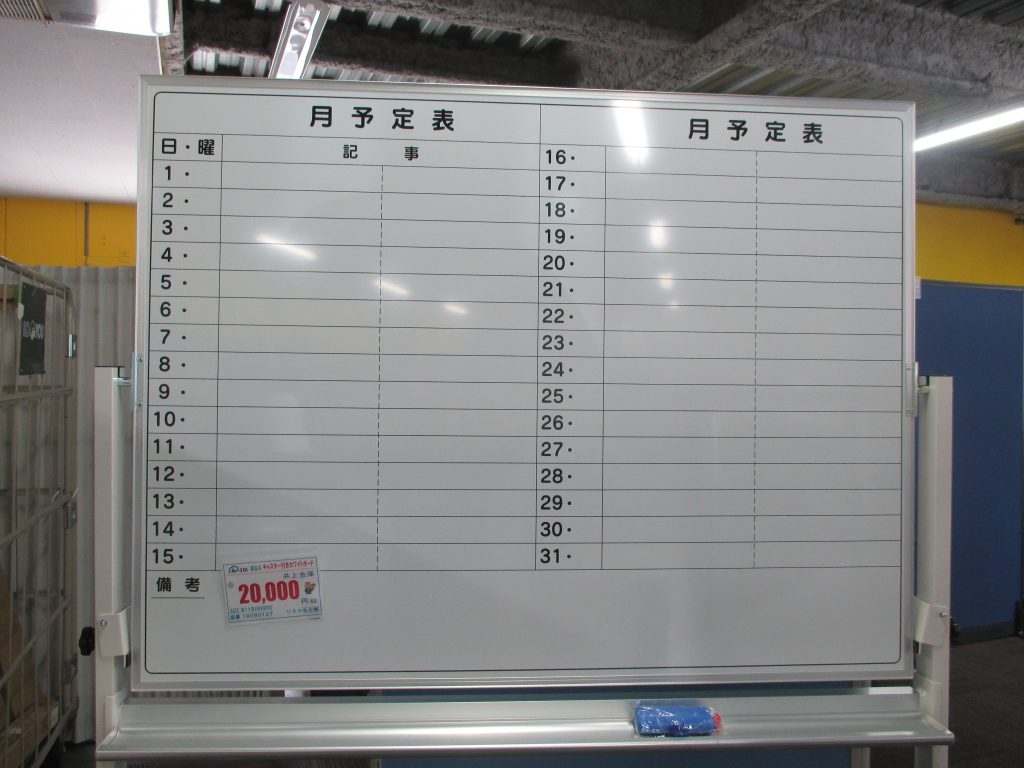 月予定表
日・曜 記事
1・
2・
3・
4・
5・
6・
7・
8・
9・
10・
11・
12・
13・
14・
15・
備考
月予定表
16・
17・
18・
19・
20・
21・
22・
23・
24・
25・
26・
27・
28・
29・
30・
31・
キャスター付きホワイトボード
井上金庫
20,000円
19090127